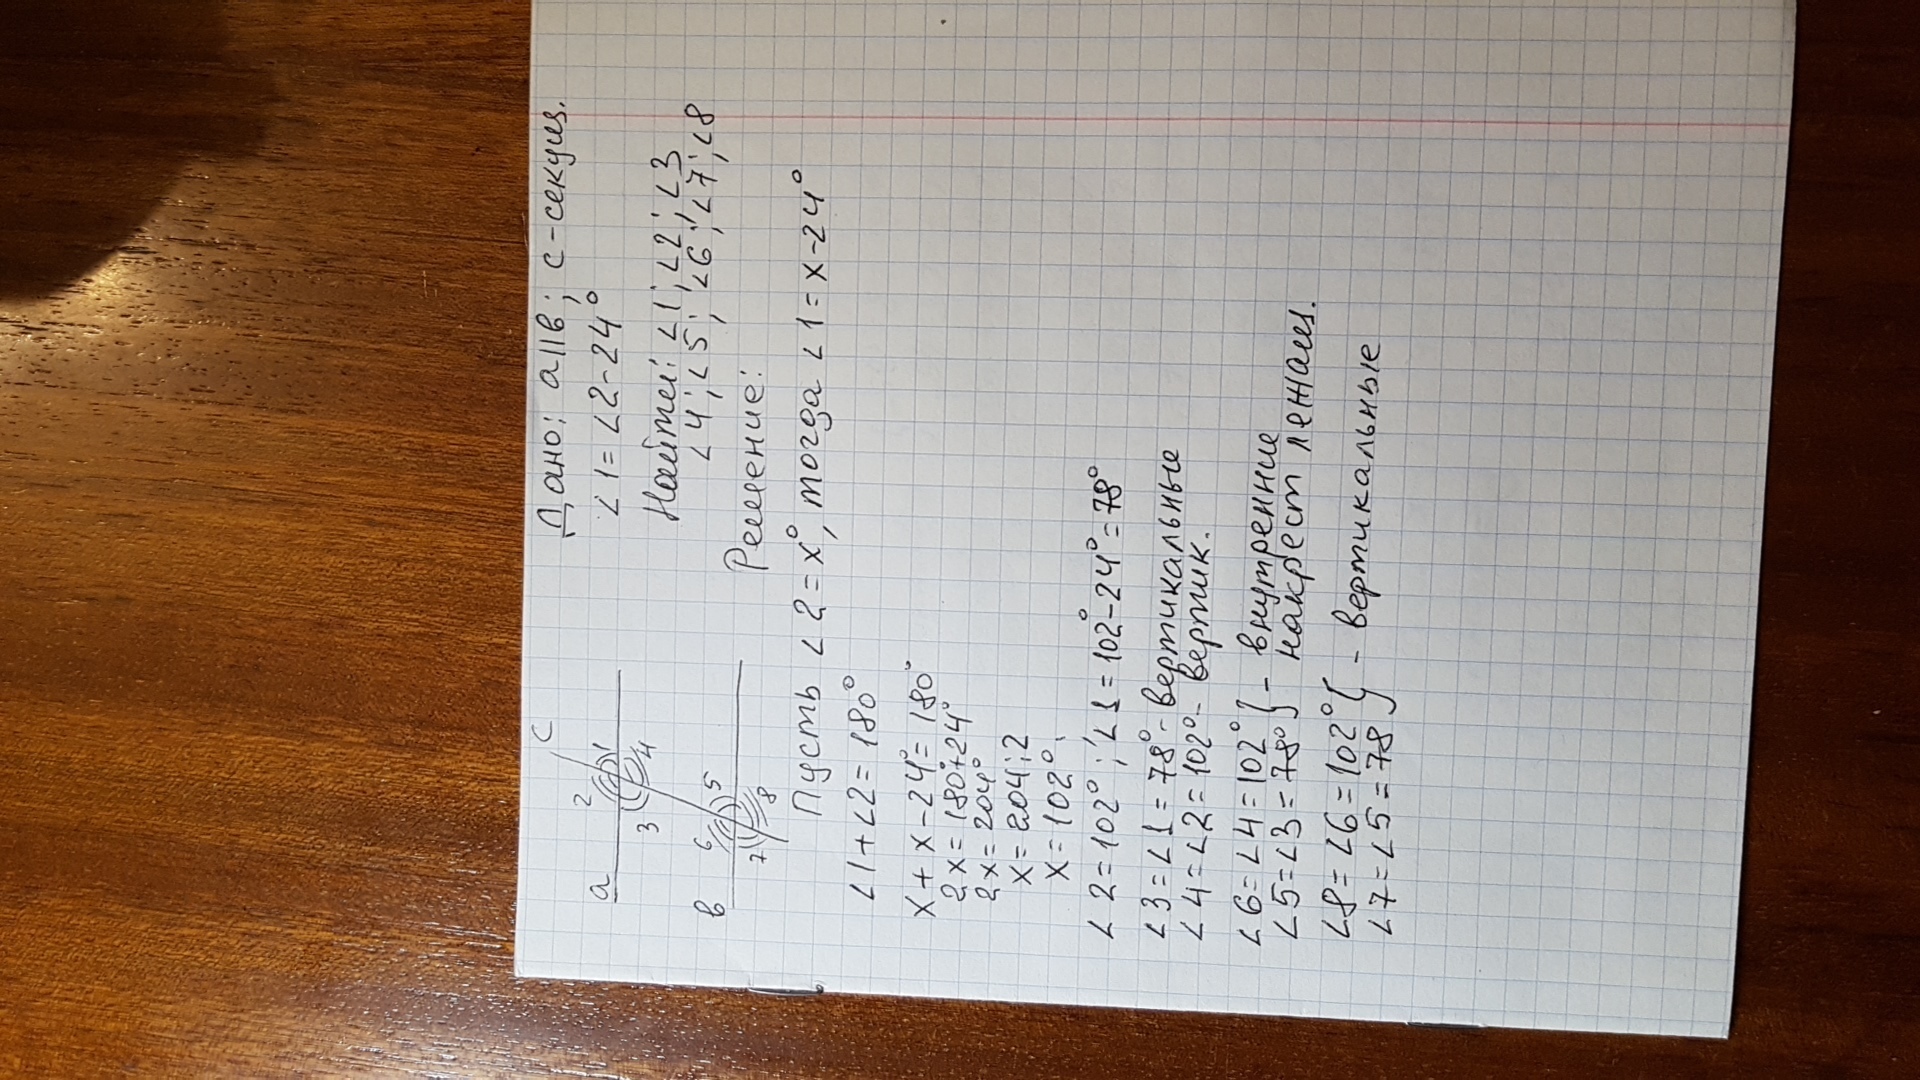 Дано: a||в; c-секущ.
∠1=∠2-24°
Найти: ∠1; ∠2; ∠3
∠4; ∠5; ∠6; ∠7; ∠8
Решение:
a
2
1
3
4
c
в
6
5
7
8
Пусть ∠2=x°, тогда ∠1=x-24°
∠1+∠2=180°
x+x-24°=180°
2x=180°+24°
2x=204°
x=204:2
x=102°
∠2=102°; ∠1=102°-24°=78°
∠3=∠1=78°-вертикальные
∠4=∠2=102°-вертик.
∠6=∠4=102° } - внутренние
∠5=∠3=78° } накрест лежащ.
∠8=∠6=102° } - вертикальные
∠7=∠5=78